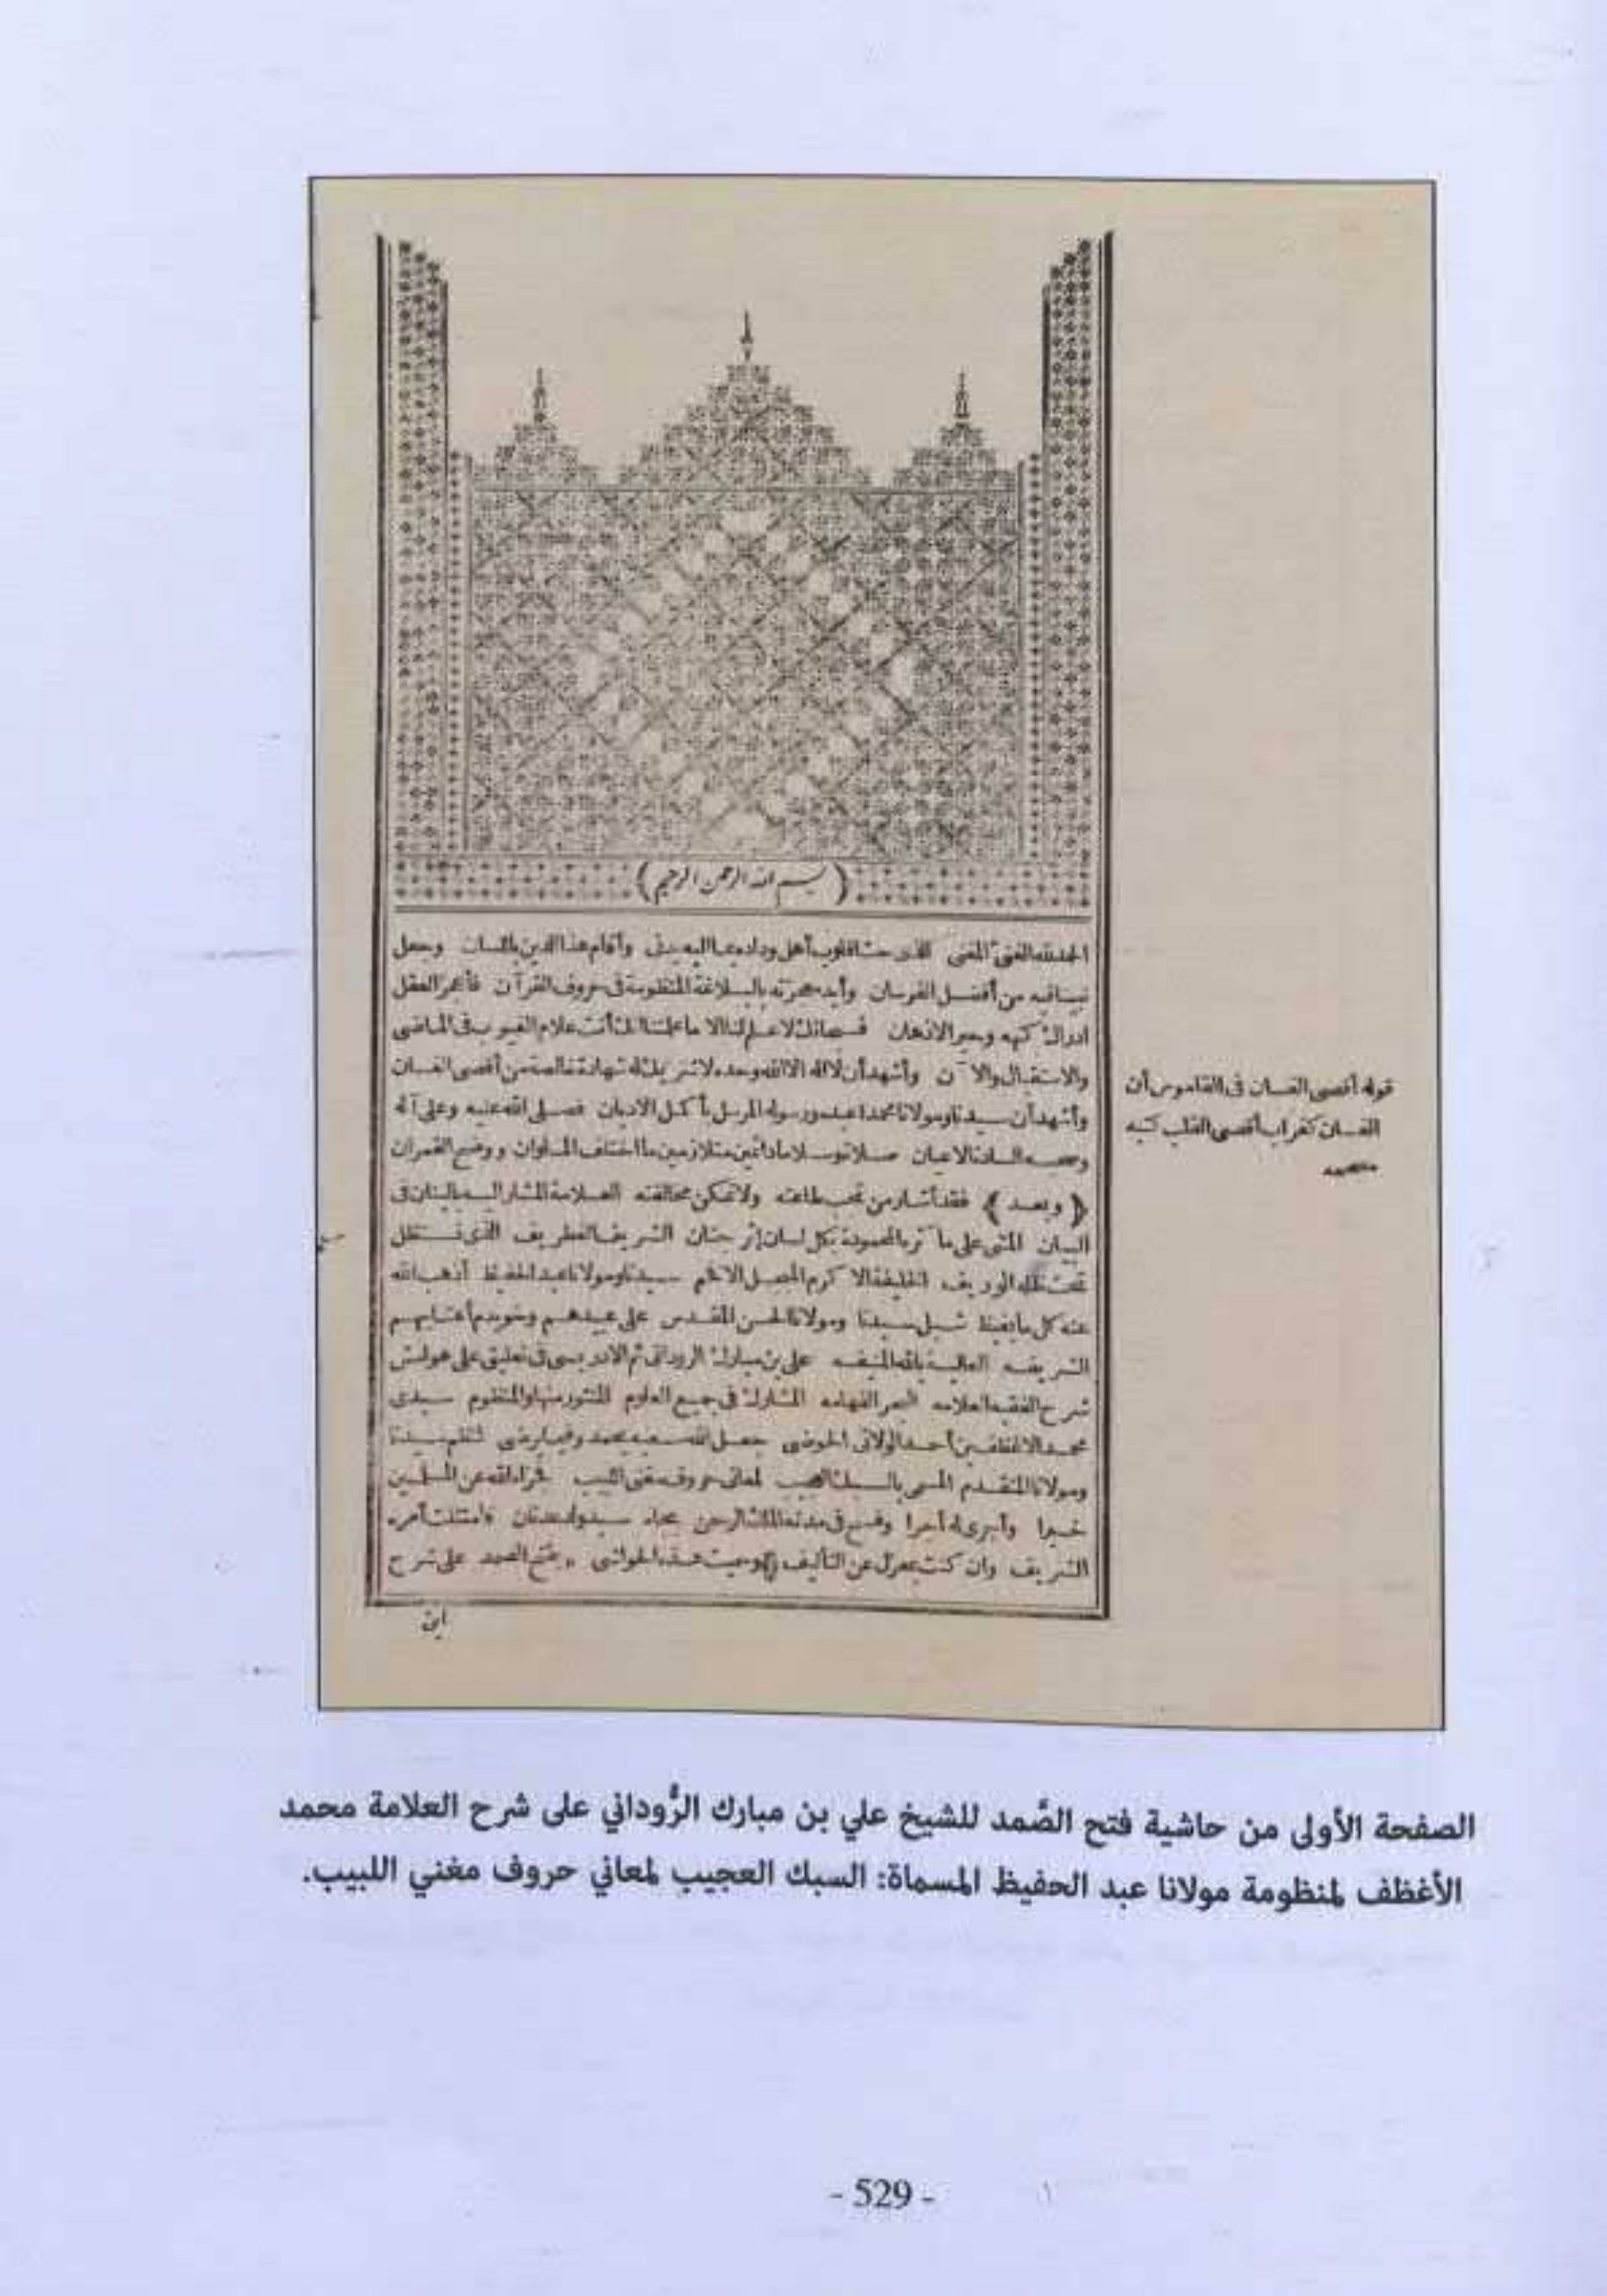 (بسم الله الرحمن الرحيم)
الحمد لله الغنى المغنى الذى وأقام هذا الدين باللسان وجعل
نبينا فيه من أفضل الفرسان وأيد معجزته بالبلاغة المنظومة فى حروف القرآن فأعجز العقل
ادراك كنهه وحير الاذهان فسبحانك لا علم لنا الا ما علمتنا انك أنت علام الغيوب فى الماضى
والاستقبال والا ن وأشهد أن لا اله الا الله وحده لا شريك له شهادة خالصة من أقصى الغسان
وأشهد أن سيدنا ومولانا محمدا عبده ورسوله المرسل بأكمل الاديان فصلى الله عليه وعلى آله
وصحبه السادة الاعيان صلاة وسلاما دائمين متلازمين ما اختلف الملوان ووضح القمران
﴿ وبعد ﴾ فقد أشار من تجب طاعته ولا تمكن مخالفته العلامة المشار اليه بالبنان فى
البيان المثنى على ما ثره المحمودة بكل لسان جنان الشريف الغطريف الذى نستظل
تحت ظله الوريف الخليفة الاكرم الاعلم سيدنا ومولانا عبد الحفيظ أذهب الله
عنه كل ما يغيظ شبل سيدنا ومولانا الحسن المقدس على عبيدهم وخويدم أعتابهم
الشريفه العالية بالله المنيفه على بن مبارك الرودانى ثم الادريسى فى تعليق على هوامش
شرح الفقيه العلامه البحر الفهامه المشارك فى جميع العلوم المنثور منها والمنظوم سيدى
محمد الاغظف بن أحمد الولاتى الحوضى جعل الله سعيه يحمد وفيما يرضى لنظم سيدنا
ومولانا المتقدم المسمى بالسبك العجيب لمعانى حروف مغنى اللبيب جزاه الله عن المسلمين
خيرا وأجرى له أجرا وفسح فى مدته الملك الرحمن بجاه سيد ولد عدنان فامتثلت أمره
الشريف وان كنت بمعزل عن التأليف وسميت هذه الحواشى بفتح الصمد على شرح
قوله أقصى الغسان فى القاموس أن
الغسان كغراب أقصى القلب كتبه
مصححه
الصفحة الأولى من حاشية فتح الصَّمد للشيخ علي بن مبارك الرُّوداني على شرح العلامة محمد
الأغظف لمنظومة مولانا عبد الحفيظ المسماة: السبك العجيب لمعاني حروف مغني اللبيب.
- 529 -